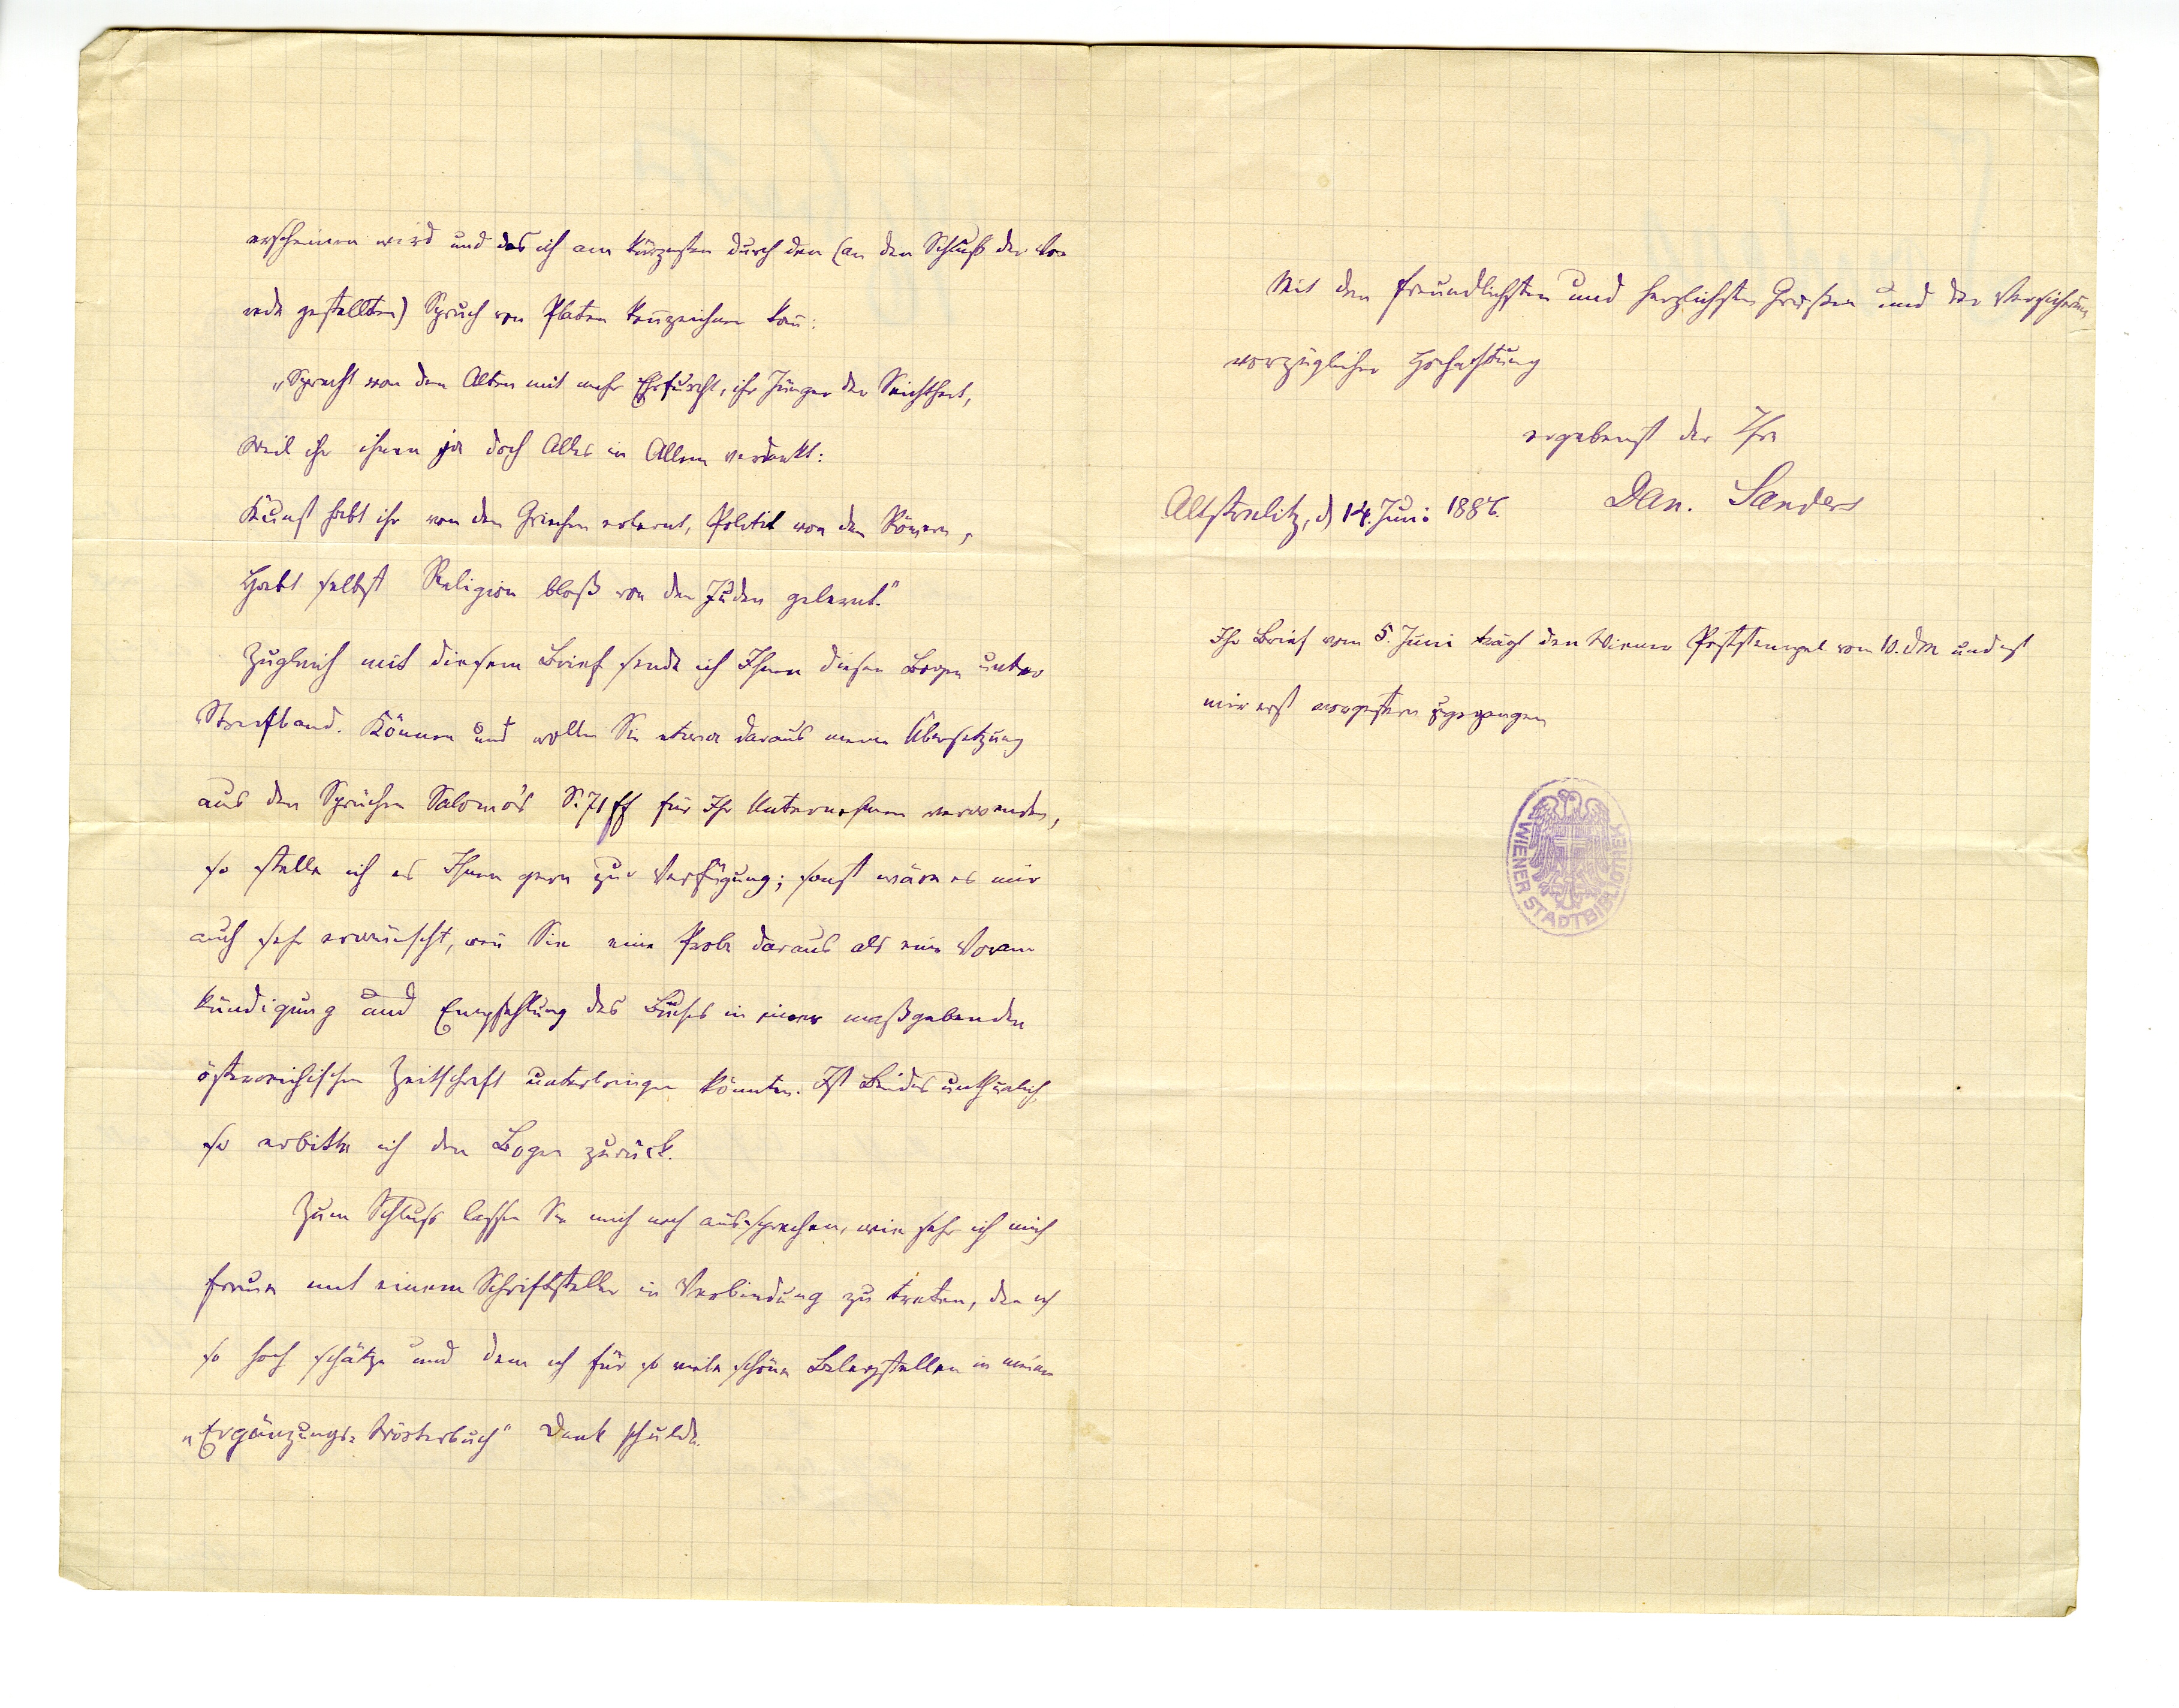 erscheinen wird und das ich am kürzesten durch den (an den Schluß der Vor-
rede gestellten) Spruch von Platen kennzeichnen kañ:
„Sprecht von den Alten mit mehr Ehrfurcht, ihr Jünger der Seichtheit,
Weil ihr ihnen ja doch Alles in Allem verdankt:
Kunst habt ihr von den Griechen erlernt, Politik von den Römern,
Habt selbst Religion bloß von den Juden gelernt."
Zugleich mit diesem Brief sende ich Ihnen diesen Bogen unter
Streifband. Können und wollen Sie etwa daraus meine Übersetzung
aus den Sprüchen Salomo's S. 71 ff für Ihr Unternehmen verwenden,
so stelle ich es Ihnen gern zur Verfügung; sonst wäre es mir
auch sehr erwünscht, weñ Sie eine Probe daraus als eine Voran-
kündigung und Empfehlung des Buches in einer maßgebenden
österreichischen Zeitschrift unterbringen könnten. Ist Beides unthunlich,
so erbitte ich den Bogen zurück.
Zum Schluß lassen Sie mich noch aussprechen, wie sehr ich mich
freue mit einem Schriftsteller in Verbindung zu treten, den ich
so hoch schätze und dem ich für so viele schöne Belegstellen in meinem
„Ergänzungs-Wörterbuch" Dank schulde.
Mit den freundlichsten und herzlichsten Grüßen und der Versicherung
vorzüglicher Hochachtung
ergebenst der Ihre
Dan. Sanders
Altstrelitz, d 14. Juni 1886.
Ihr Brief vom 5. Juni trägt den Wiener Poststempel vom 10. dM und ist
mir erst vorgestern zugegangen
WIENER STADTBIBLIOTHEK